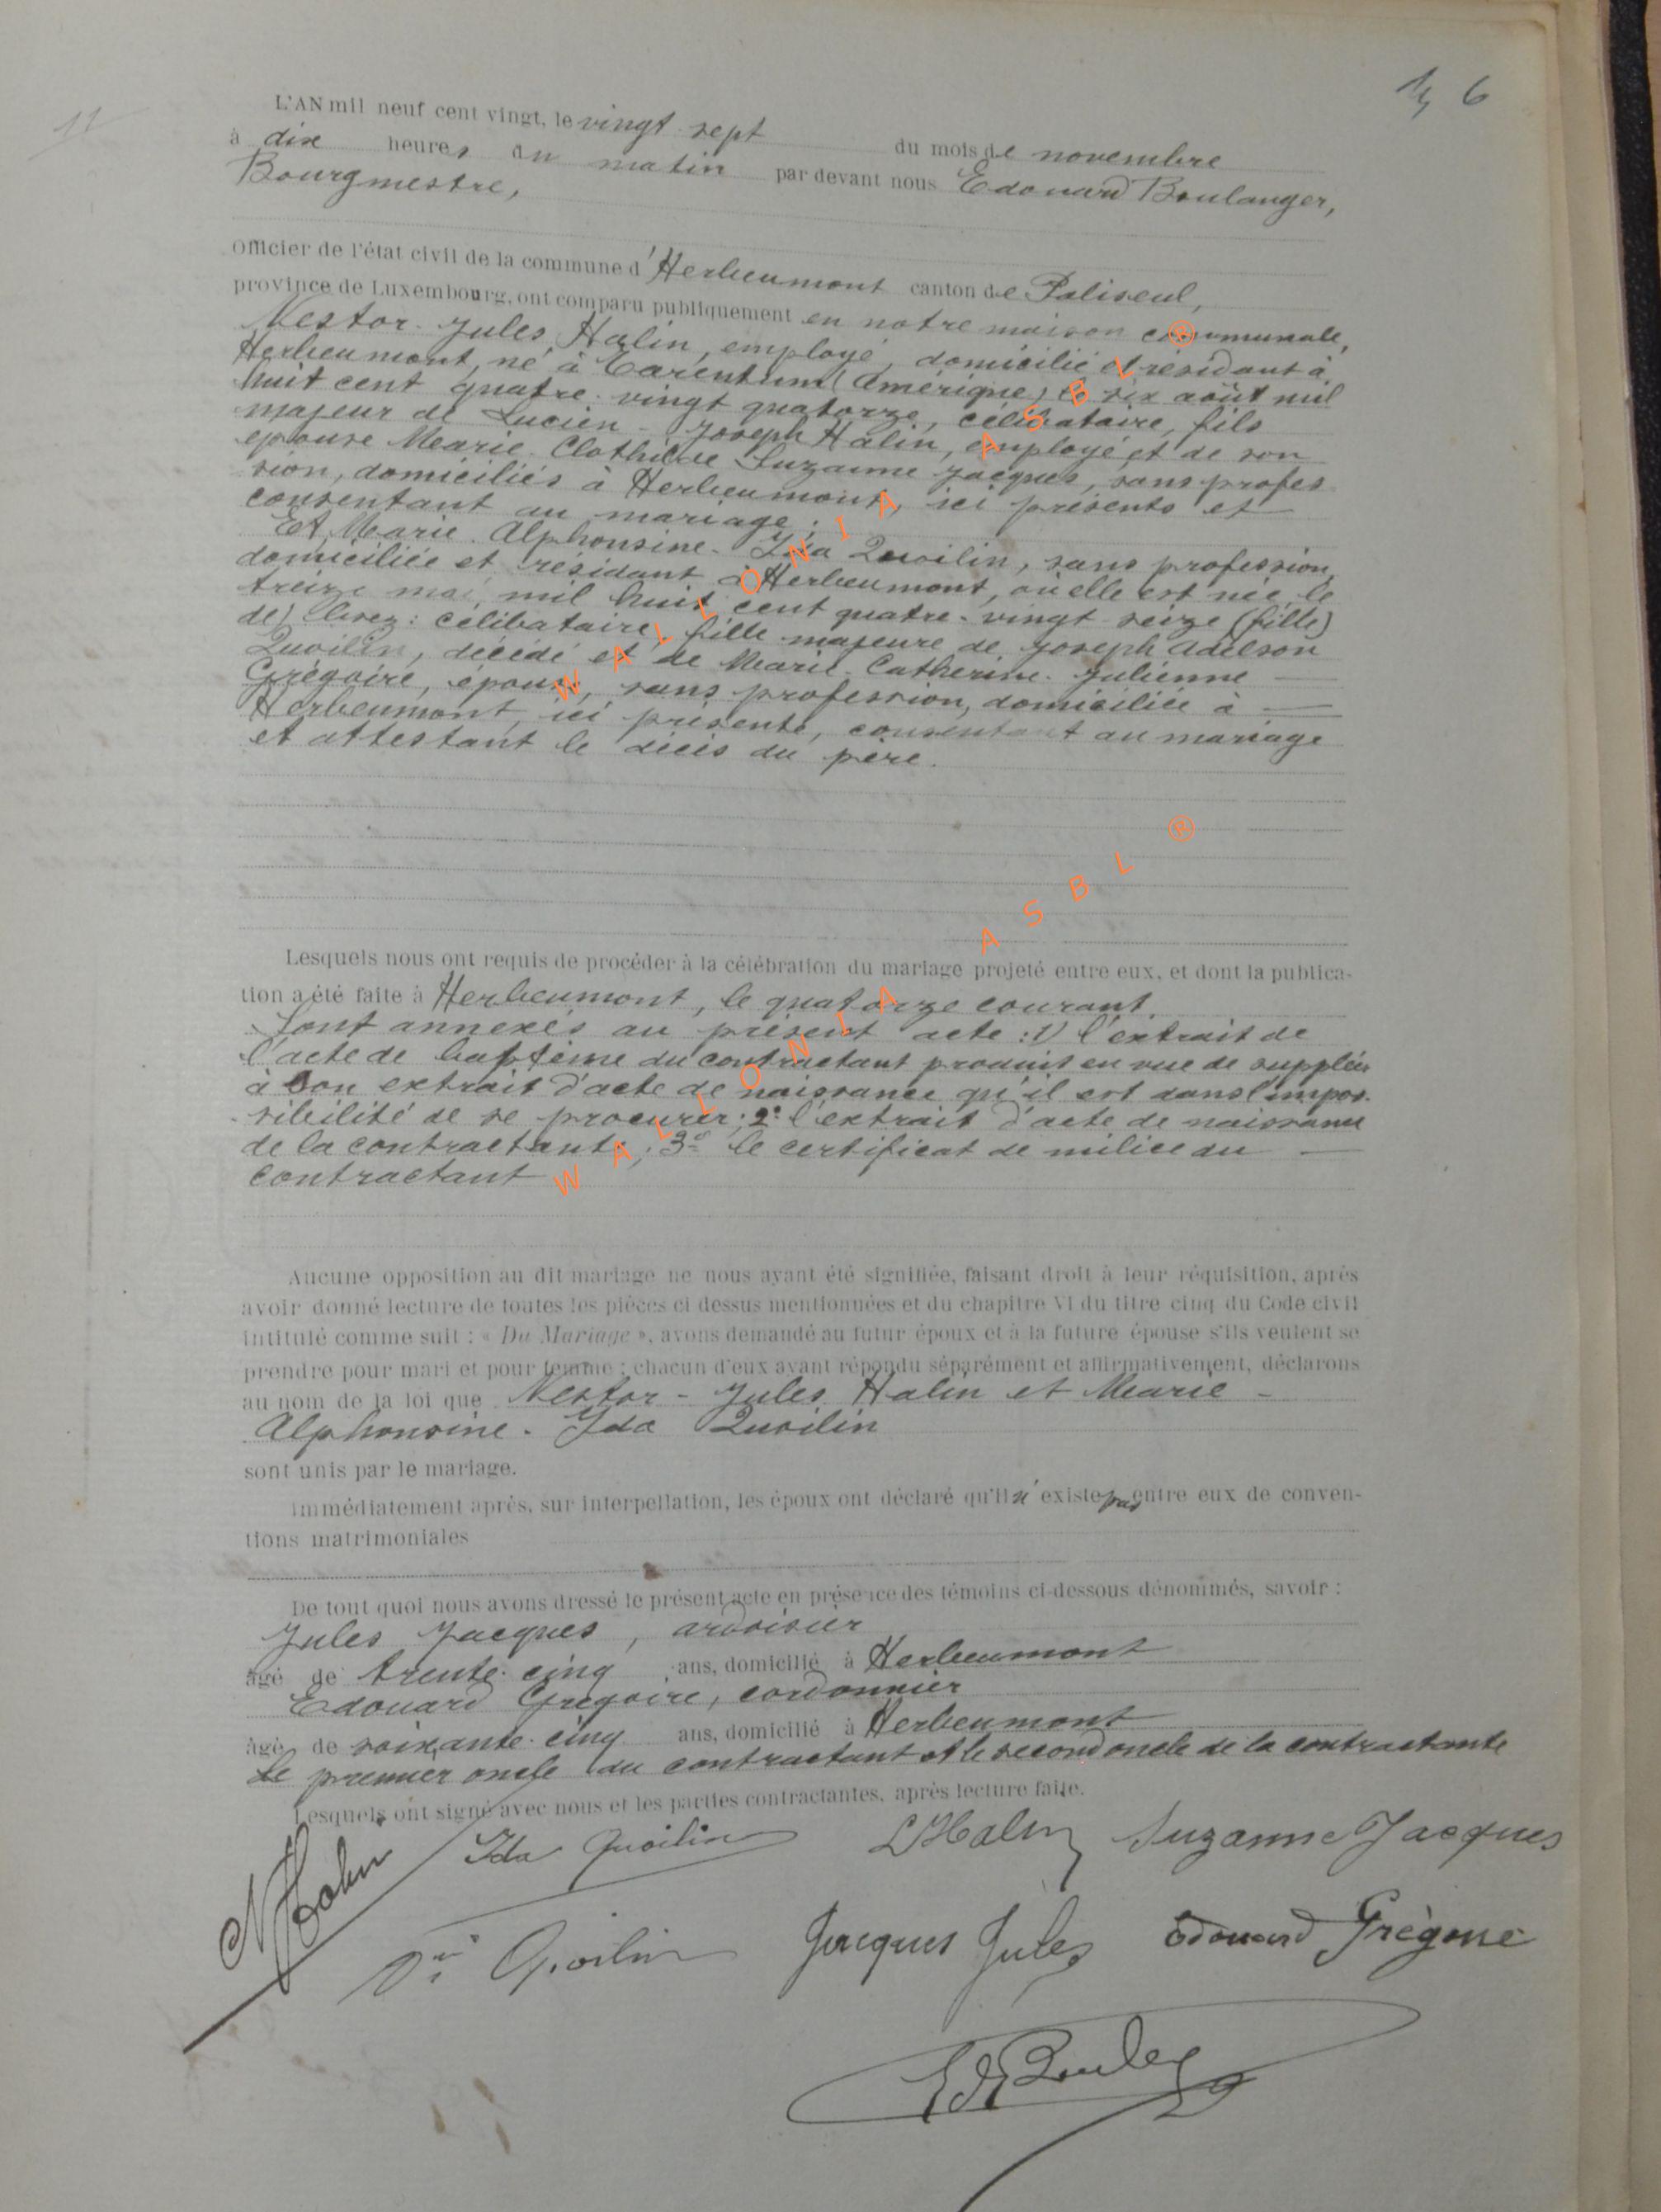 6
11
L'AN mil neuf cent vingt, le vingt-sept du mois de novembre
à dix heures du matin par devant nous Edouard Boulanger,
Bourgmestre,
Officier de l'état civil de la commune d'Herbeumont canton de Paliseul,
province de Luxembourg, ont comparu publiquement en notre maison communale,
Nestor-Jules Halin, employé, domicilié et résidant à
Herbeumont, né à Tarentum (Amérique) le six août mil
huit cent quatre-vingt quatorze, célibataire, fils
majeur de Lucien-Joseph Halin, employé, et de son
épouse Marie-Clothilde Suzanne Jacques, sans profes
sion, domiciliés à Herbeumont, ici présents et
consentant au mariage;
Et Marie-Alphonsine-Ida Quoilin, sans profession,
domiciliée et résidant à Herbeumont, où elle est née, le
treize mai, mil huit cent quatre-vingt-seize (fille)
de) lisez: célibataire, fille majeure de Joseph Adelson
Quoilin, décédé et de Marie-Catherine-Julienne
Grégoire, épouse, sans profession, domiciliée à
Herbeumont, ici présente, consentant au mariage
et attestant le décès du père.
Lesquels nous ont requis de procéder à la célébration du mariage projeté entre eux, et dont la publica-
tion a été faite à Herbeumont, le quatorze courant.
Sont annexés au présent acte: 1) l'extrait de
l'acte de baptême du contractant produit en vue de suppléer
à son extrait d'acte de naissance qu'il est dans l'impos-
sibilité de se procurer; 2° l'extrait d'acte de naissance
de la contractante; 3° le certificat de milice du
contractant
Aucune opposition au dit mariage ne nous ayant été signifiée, faisant droit à leur réquisition, après
avoir donné lecture de toutes les pièces ci dessus mentionnées et du chapitre VI du titre cinq du Code civil
intitulé comme suit : « Du Mariage », avons demandé au futur époux et à la future épouse s'ils veulent se
prendre pour mari et pour femme ; chacun d'eux ayant répondu séparément et affirmativement, déclarons
au nom de la loi que Nestor-Jules Halin et Marie-
Alphonsine-Ida Quoilin
sont unis par le mariage.
Immédiatement après, sur interpellation, les époux ont déclaré qu'il n'existe pas entre eux de conven-
tions matrimoniales
De tout quoi nous avons dressé le présent acte en présence des témoins ci-dessous dénommés, savoir :
Jules Jacques, ardoisier
âgé de trente-cinq ans, domicilié à Herbeumont
Edouard Grégoire, cordonnier
âgé de soixante-cinq ans, domicilié à Herbeumont
Le premier oncle du contractant et le second oncle de la contractante
Lesquels ont signé avec nous et les parties contractantes, après lecture faite.
N Halin Ida Quoilin L Halin Suzanne Jacques
Quoilin Jacques Jules Edouard Grégoire
WALLONIA ASBL ®
WALLONIA ASBL ®